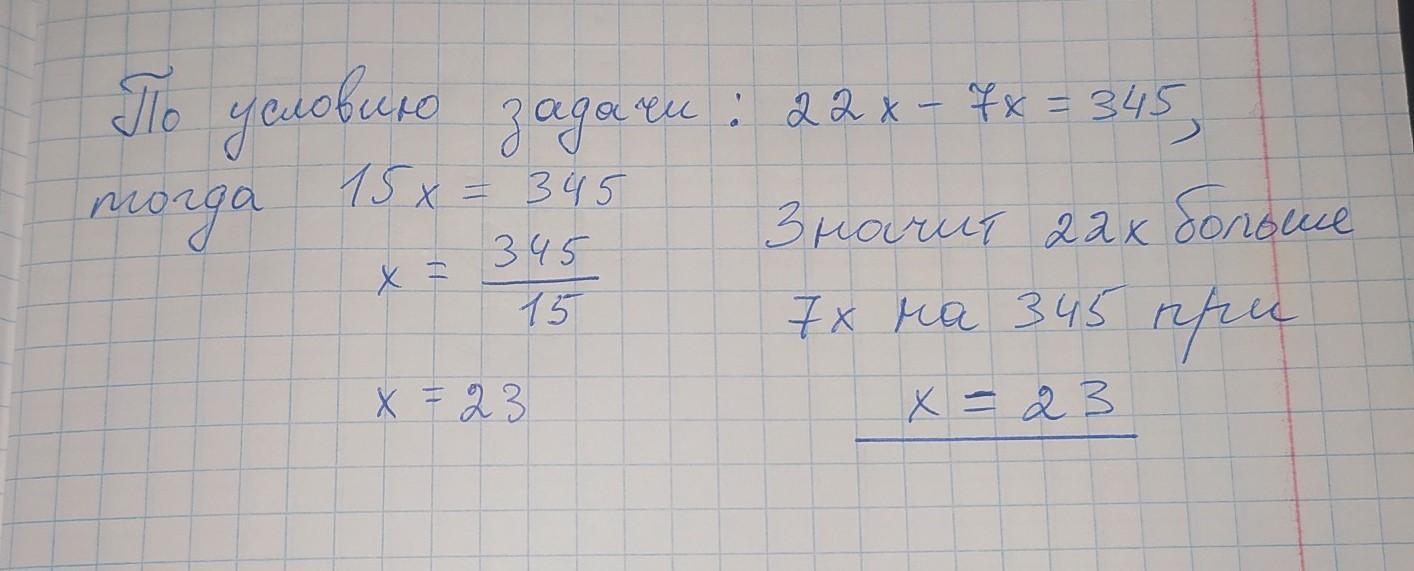 По условию задачи : 22x - 7x = 345,
тогда 15x = 345
x = 345/15
x = 23
Значит 22x больше
7x на 345 при
x = 23